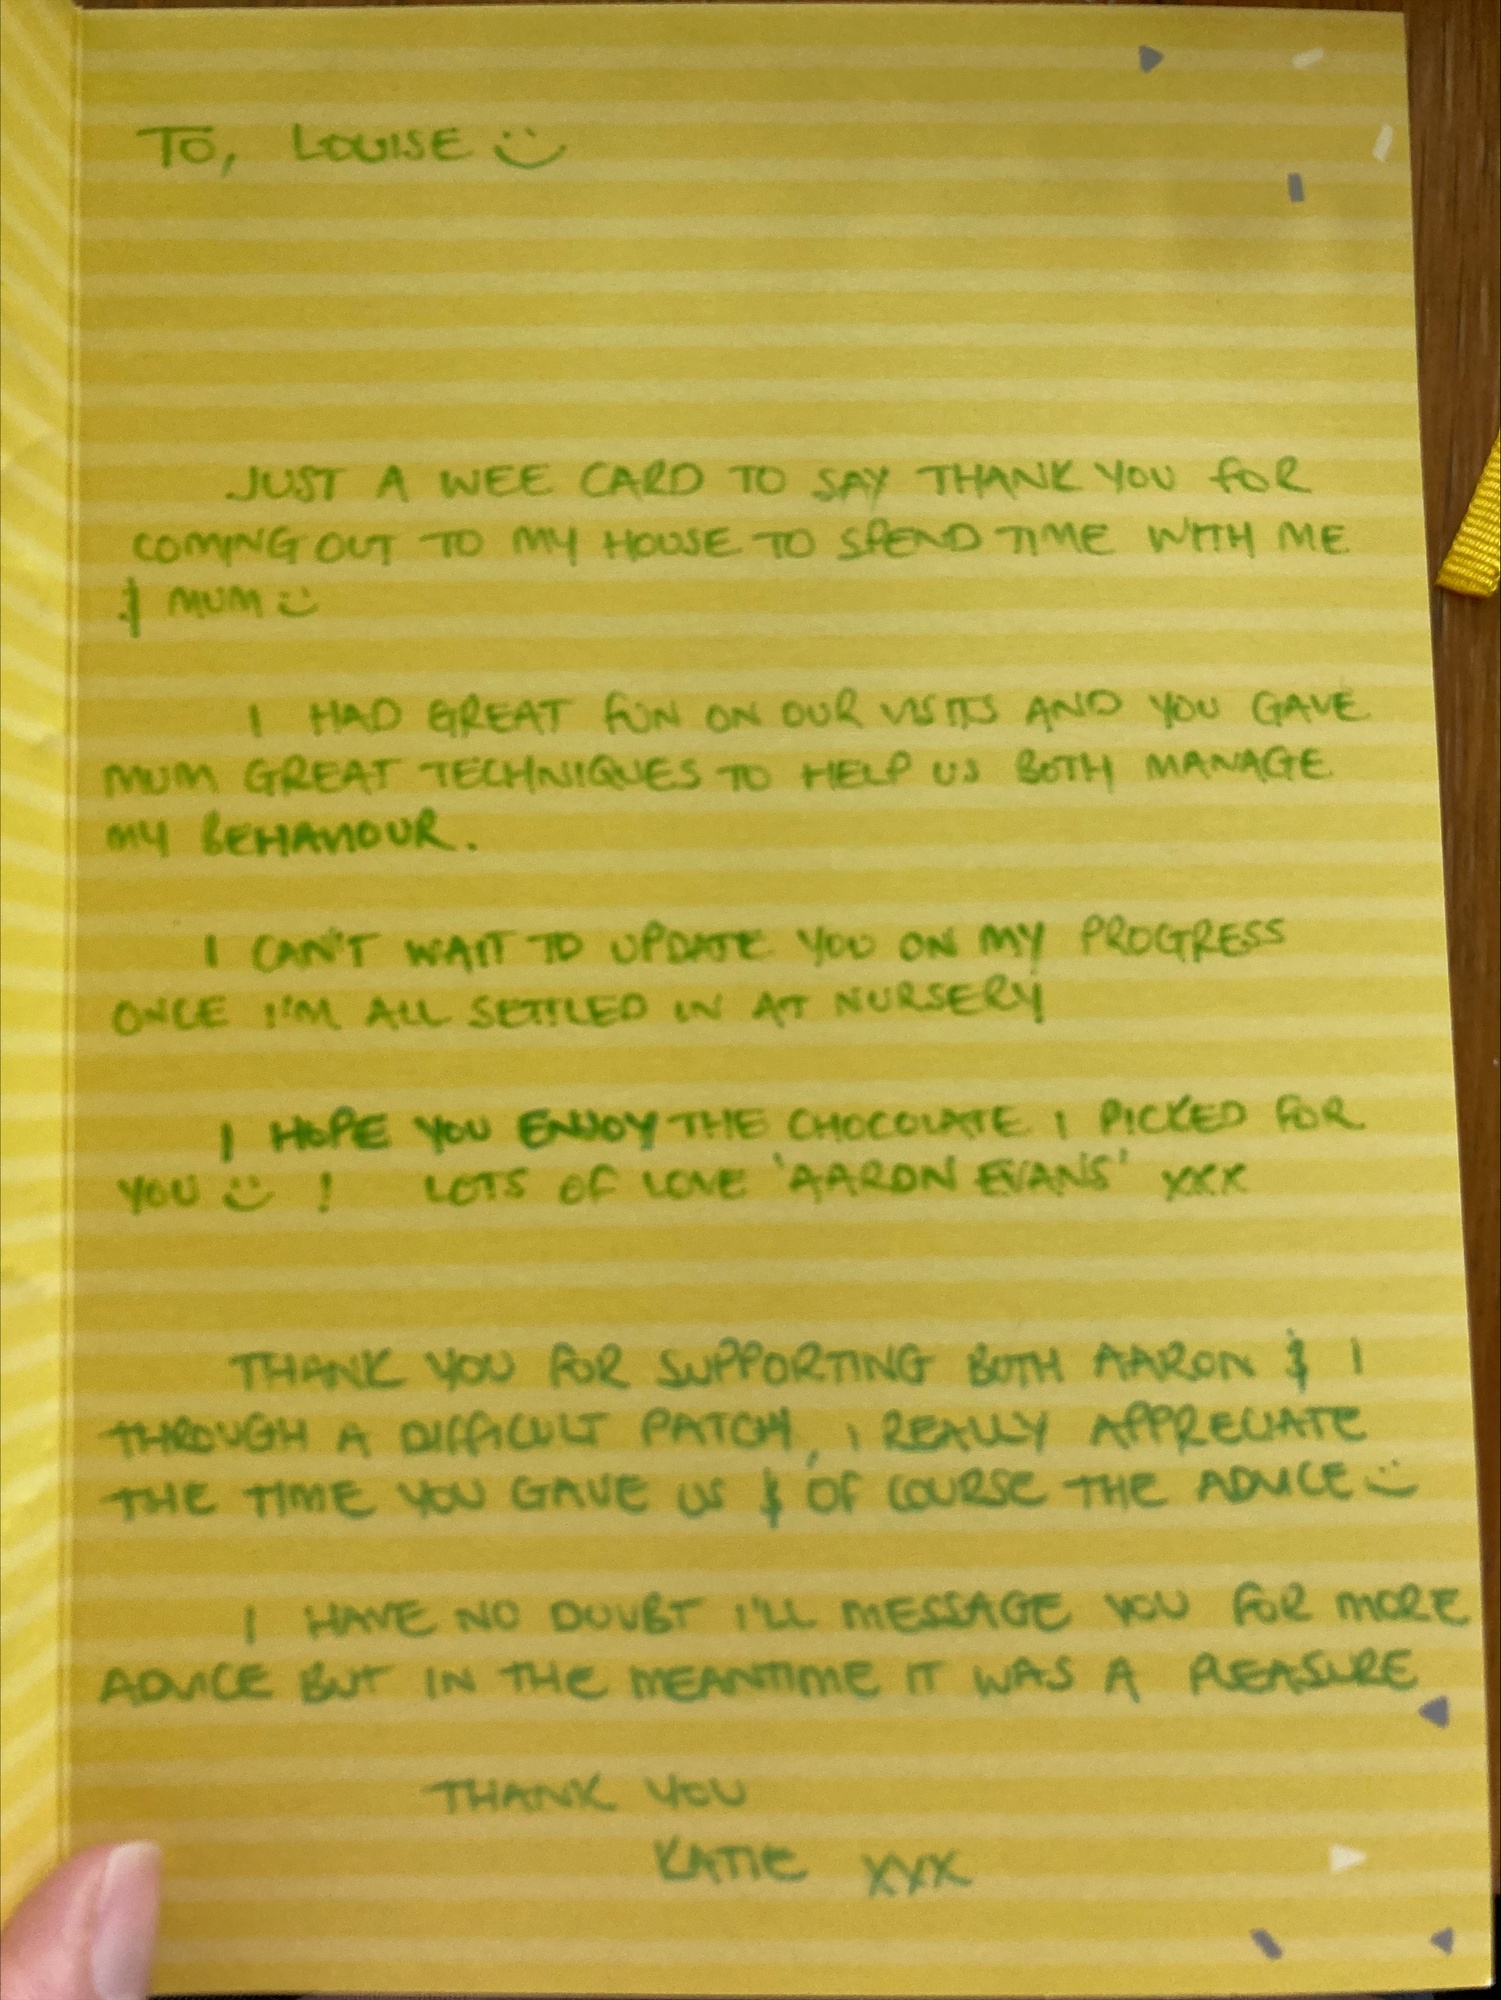 TO, LOUISE :)
JUST A WEE CARD TO SAY THANK YOU FOR
COMING OUT TO MY HOUSE TO SPEND TIME WITH ME
& MUM :)
I HAD GREAT FUN ON OUR VISITS AND YOU GAVE
MUM GREAT TECHNIQUES TO HELP US BOTH MANAGE
MY BEHAVIOUR.
I CAN'T WAIT TO UPDATE YOU ON MY PROGRESS
ONCE I'M ALL SETTLED IN AT NURSERY
I HOPE YOU ENJOY THE CHOCOLATE I PICKED FOR
YOU :) ! LOTS OF LOVE 'AARON EVANS' XXX
THANK YOU FOR SUPPORTING BOTH AARON & I
THROUGH A DIFFICULT PATCH, I REALLY APPRECIATE
THE TIME YOU GAVE US & OF COURSE THE ADVICE :)
I HAVE NO DOUBT I'LL MESSAGE YOU FOR MORE
ADVICE BUT IN THE MEANTIME IT WAS A PLEASURE
THANK YOU
KATIE XXX